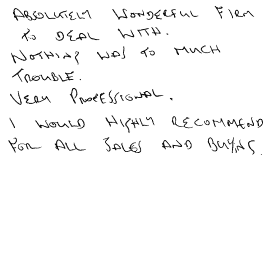 ABSOLUTELY WONDERFUL FIRM
TO DEAL WITH.
NOTHING WAS TO MUCH
TROUBLE.
VERY PROFESSIONAL.
I WOULD HIGHLY RECOMMEND
FOR ALL SALES AND BUYING.